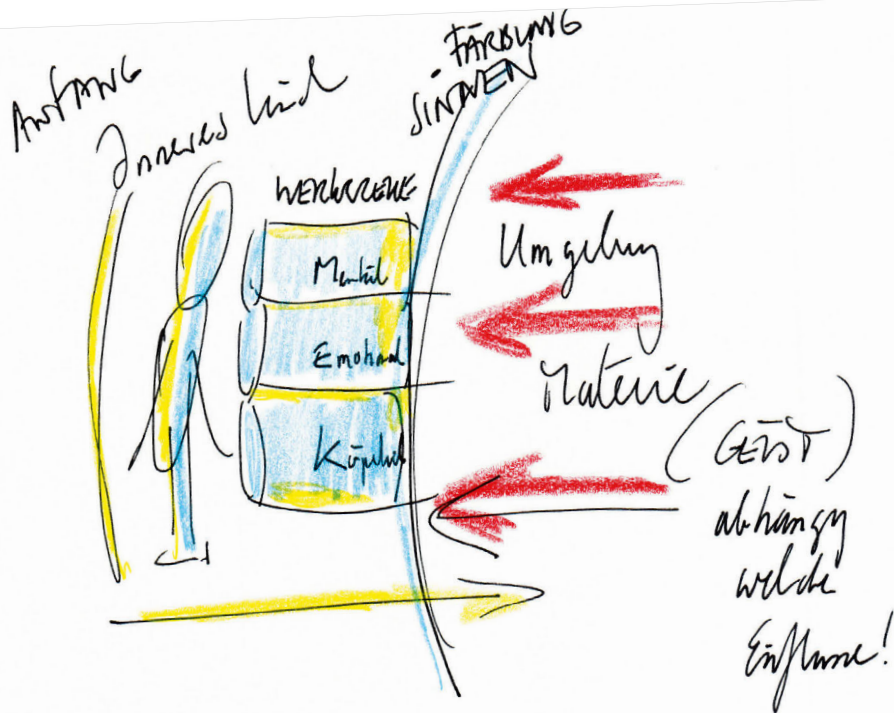 ANFANG
Inneres Kind
FÄRBUNG
SINNEN
WERKZEUGE
Mental
Emotional
Körperlich
Umgebung
Materie
(GEIST)
abhängig
welche
Einflüsse!